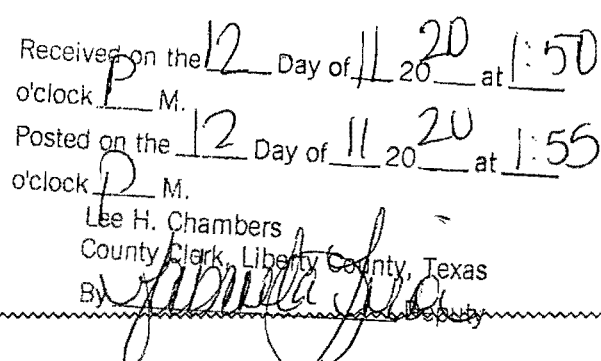 Received on the 12 Day of 11 2020 at 1:50
o'clock P M.
Posted on the 12 Day of 11 2020 at 1:55
o'clock P M.
Lee H. Chambers
County Clerk, Liberty County, Texas
By Deputy